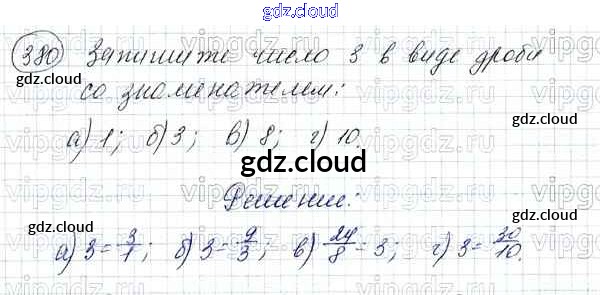 gdz.cloud
380 Запишите число 3 в виде дроби
gdz.cloud gdz.cloud
со знаменателем:
а) 1; б) 3; в) 8; г) 10.
gdz.cloud
Решение:
gdz.cloud gdz.cloud
а) 3 = 3/1; б) 3 = 9/3; в) 24/8 = 3; г) 3 = 30/10.
gdz.cloud